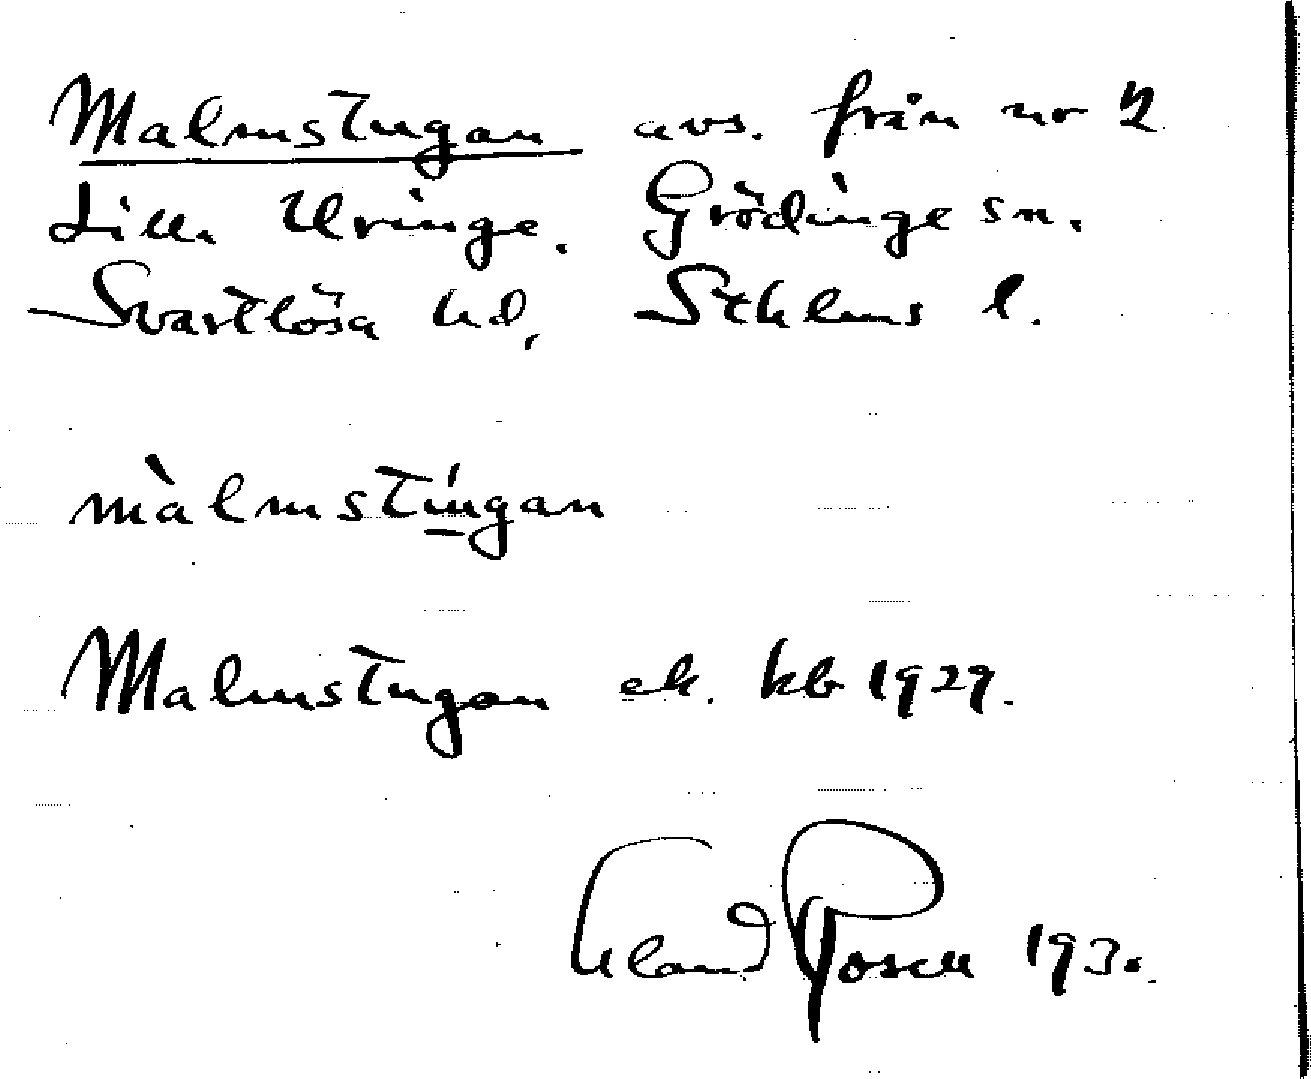 Malmstugan avs. från nr 2
Lilla Uringe. Grödinge sn.
Svartlösa hd, Sthlms l.
màlmstúgan
Malmstugan ek. kb 1929.
1930.